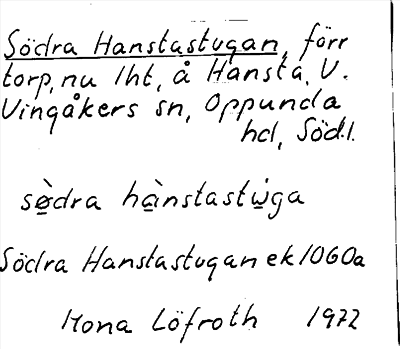 Södra Hanstastugan, förr
torp, nu lht, å Hansta, V.
Vingåkers sn, Oppunda
hd, Södl.
sø̀dra hànstastẁga
Södra Hanstastugan ek 1060a
Mona Löfroth 1972